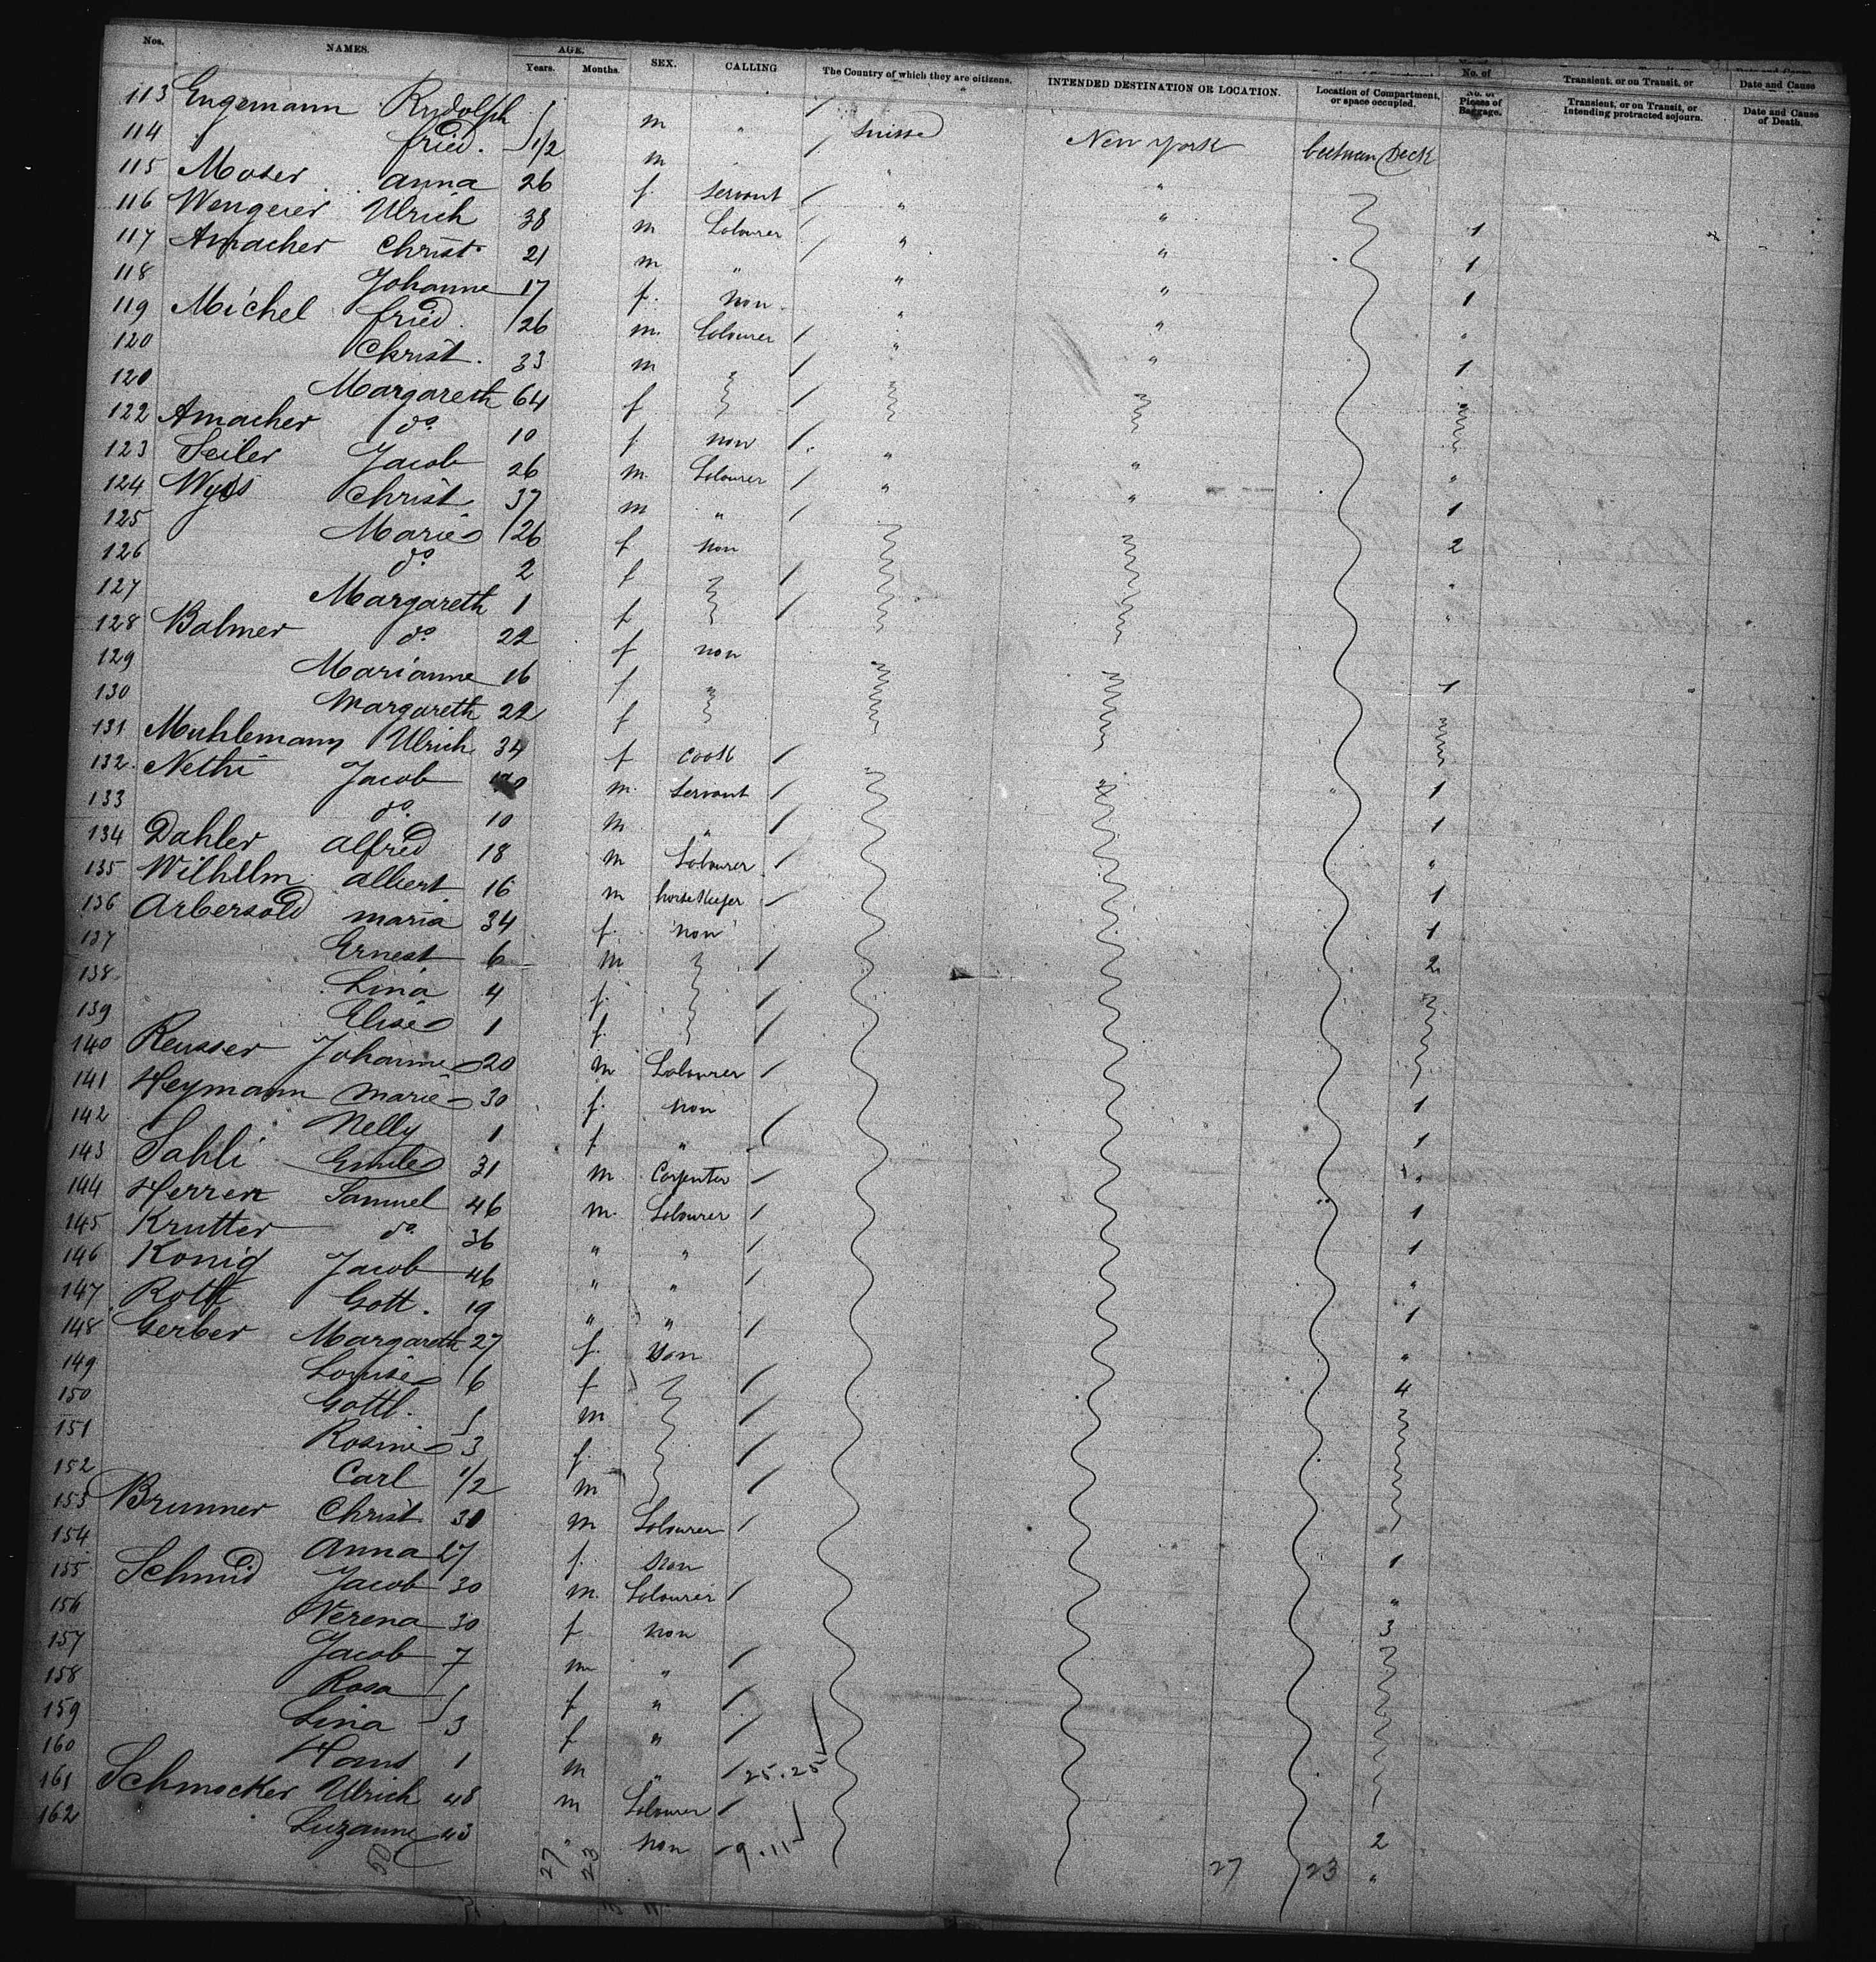 Nos. NAMES. AGE. Years. Months. SEX. CALLING The Country of which they are citizens. INTENDED DESTINATION OR LOCATION. Location of Compartment, or space occupied. No. of Pieces of Baggage. Transient, or on Transit, or Intending protracted sojourn. Date and Cause of Death.
113 Engemann Rudolph m " Suisse New York between Deck
114 " fried. 1/2 m " "
115 Moser anna 26 f servant " "
116 Wengerer Ulrich 38 m Labourer " " 1
117 Amacher Christ. 21 m " " " 1
118 Johanne 17 f. non " " 1
119 Michel fried. 26 m. Labourer " " "
120 Christ. 33 m 1
120 Margareth 64 f
122 Amacher do 10 f non " "
123 Seiler Jacob 26 m. Labourer " " "
124 Wyss Christ. 37 m " 1
125 Marie 26 f non 2
126 do 2 f "
127 Margareth 1 f "
128 Balmer do 22 f non
129 Marianne 16 f 1
130 Margareth 22 f
131 Muhlemann Ulrich 34 f cook
132. Nethi Jacob m. servant " 1
133 do. 10 m " 1
134 Dahler alfred 18 m Labourer "
135 Wilhelm albert 16 m horsekeeper 1
136 Arbersold maria 34 f. non 1
137 Ernest 6 m 2
138 Lina 4 f.
139 Elise 1 f.
140 Reusser Johanne 20 m Labourer
141 Heymann Marie 30 f. non 1
142 Nelly 1 f. " 1
143 Sahli Emile 31 m. Carpenter "
144 Herren Samuel 46 m. Labourer 1
145 Krutter do. 36 " " 1
146 Konig Jacob 46 " " "
147 Roth Gott. 19 " " 1
148 Gerber Margareth 27 f. non "
149 Louise 6 f 4
150 Gottl. 5 m
151 Rosine 3 f.
152 Carl 1/2 m
153 Brunner Christ. 30 m Labourer
154 anna 27 f. non 1
155 Schmid Jacob 30 m. Labourer "
156 Verena 30 f non 3
157 Jacob 7 m "
158 Rosa 5 f "
159 Lina 3 f "
160 Hans 1 m " 25.25
161 Schmocker Ulrich 48 m Labourer
162 Suzanne 43 " non 9.11 2
50 27 23 27 23 "